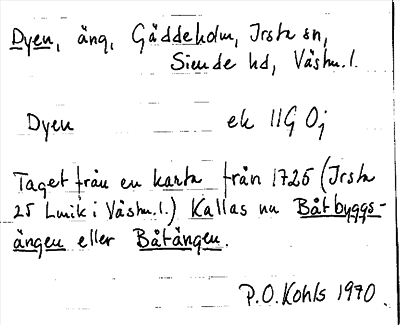 Dyen, äng, Gäddeholm, Irsta sn,
Siende hd, Västm. l.
Dyen ek 11G 0j
Taget från en karta från 1725 (Irsta
25 Lmik i Västm. l.) Kallas nu Båtbyggs-
ängen eller Båtängen.
P.O. Kohls 1970.